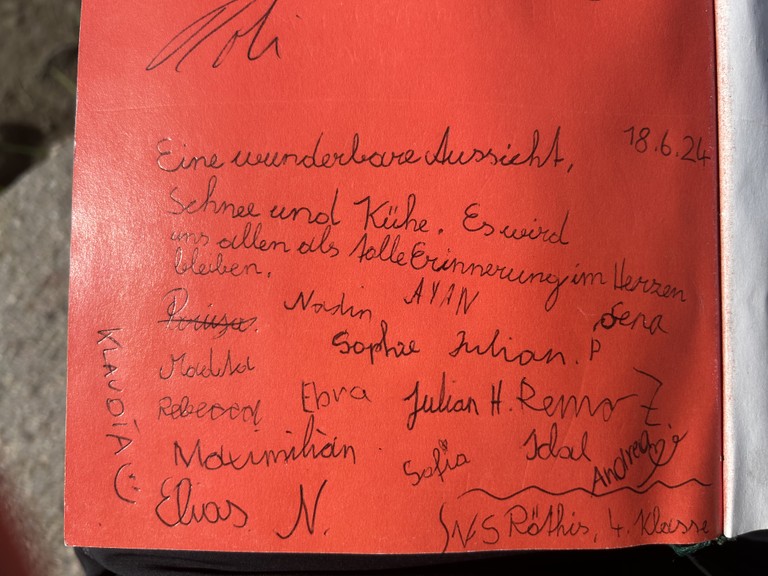 18.6.24
Eine wunderbare Aussicht,
Schnee und Kühe. Es wird
uns allen als tolle Erinnerung im Herzen
bleiben.
Nadin AYAN Sena
Sophie Julian. P
Rebecca Ebra Julian H. Remo Z.
Maximilian Sofia Idal Andrea
Elias N.
KLAUDIA
VS Röthis, 4. Klasse